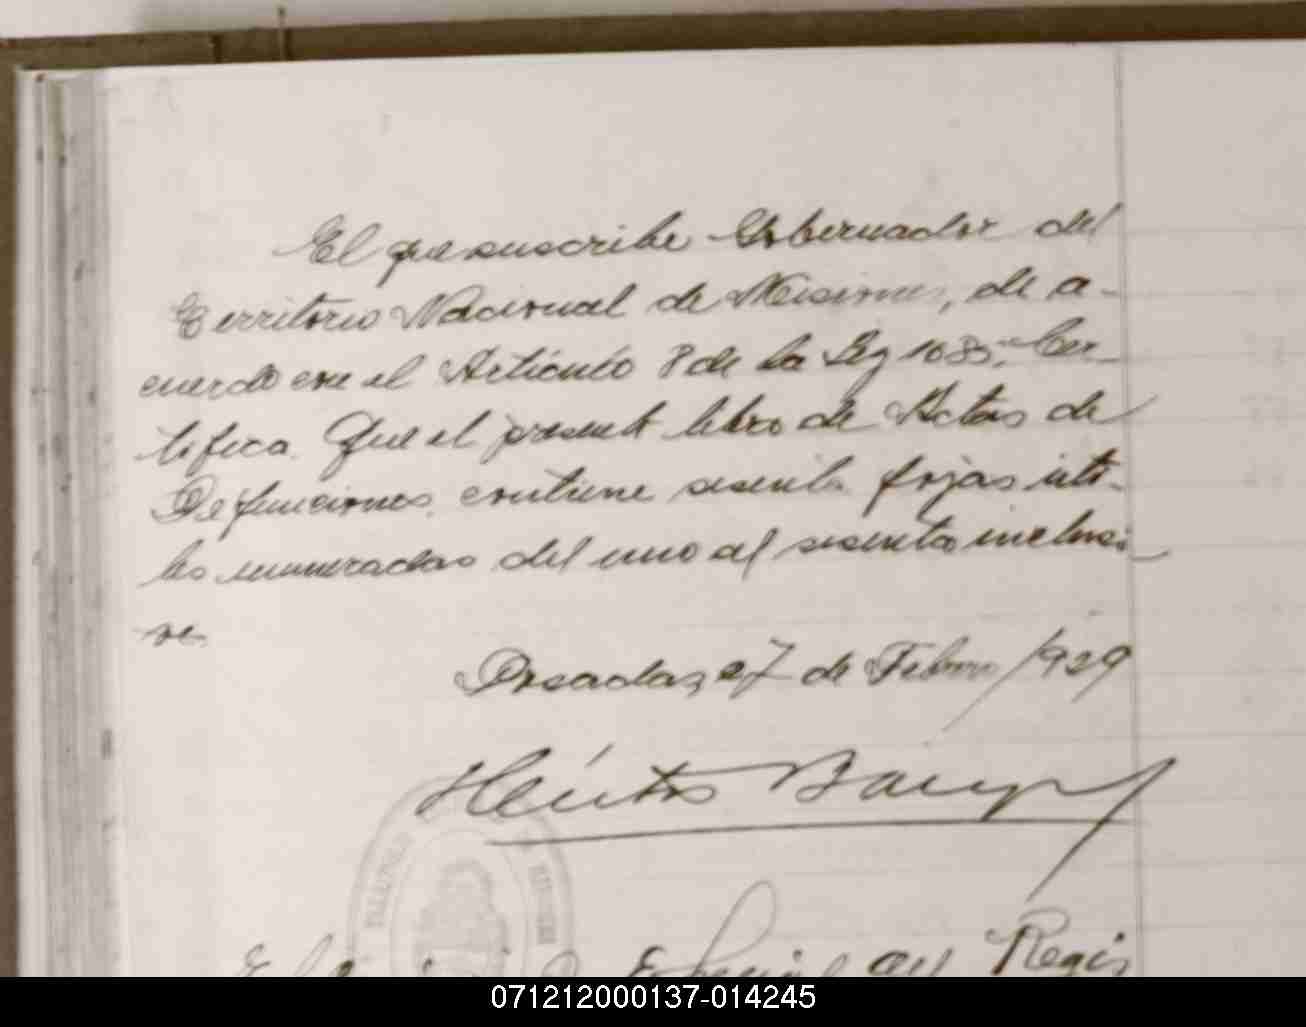 El que suscribe Gobernador del
Territorio Nacional de Misiones, de a-
cuerdo con el Artículo 8 de la Ley 1685; Cer-
tifica. Que el presente libro de Actas de
Defunciones, contiene sesenta fojas úti-
les numeradas del uno al sesenta inclusi-
ve.
Posadas, 27 de Febrero/1929
Héctor
del Regis
071212000137-014245